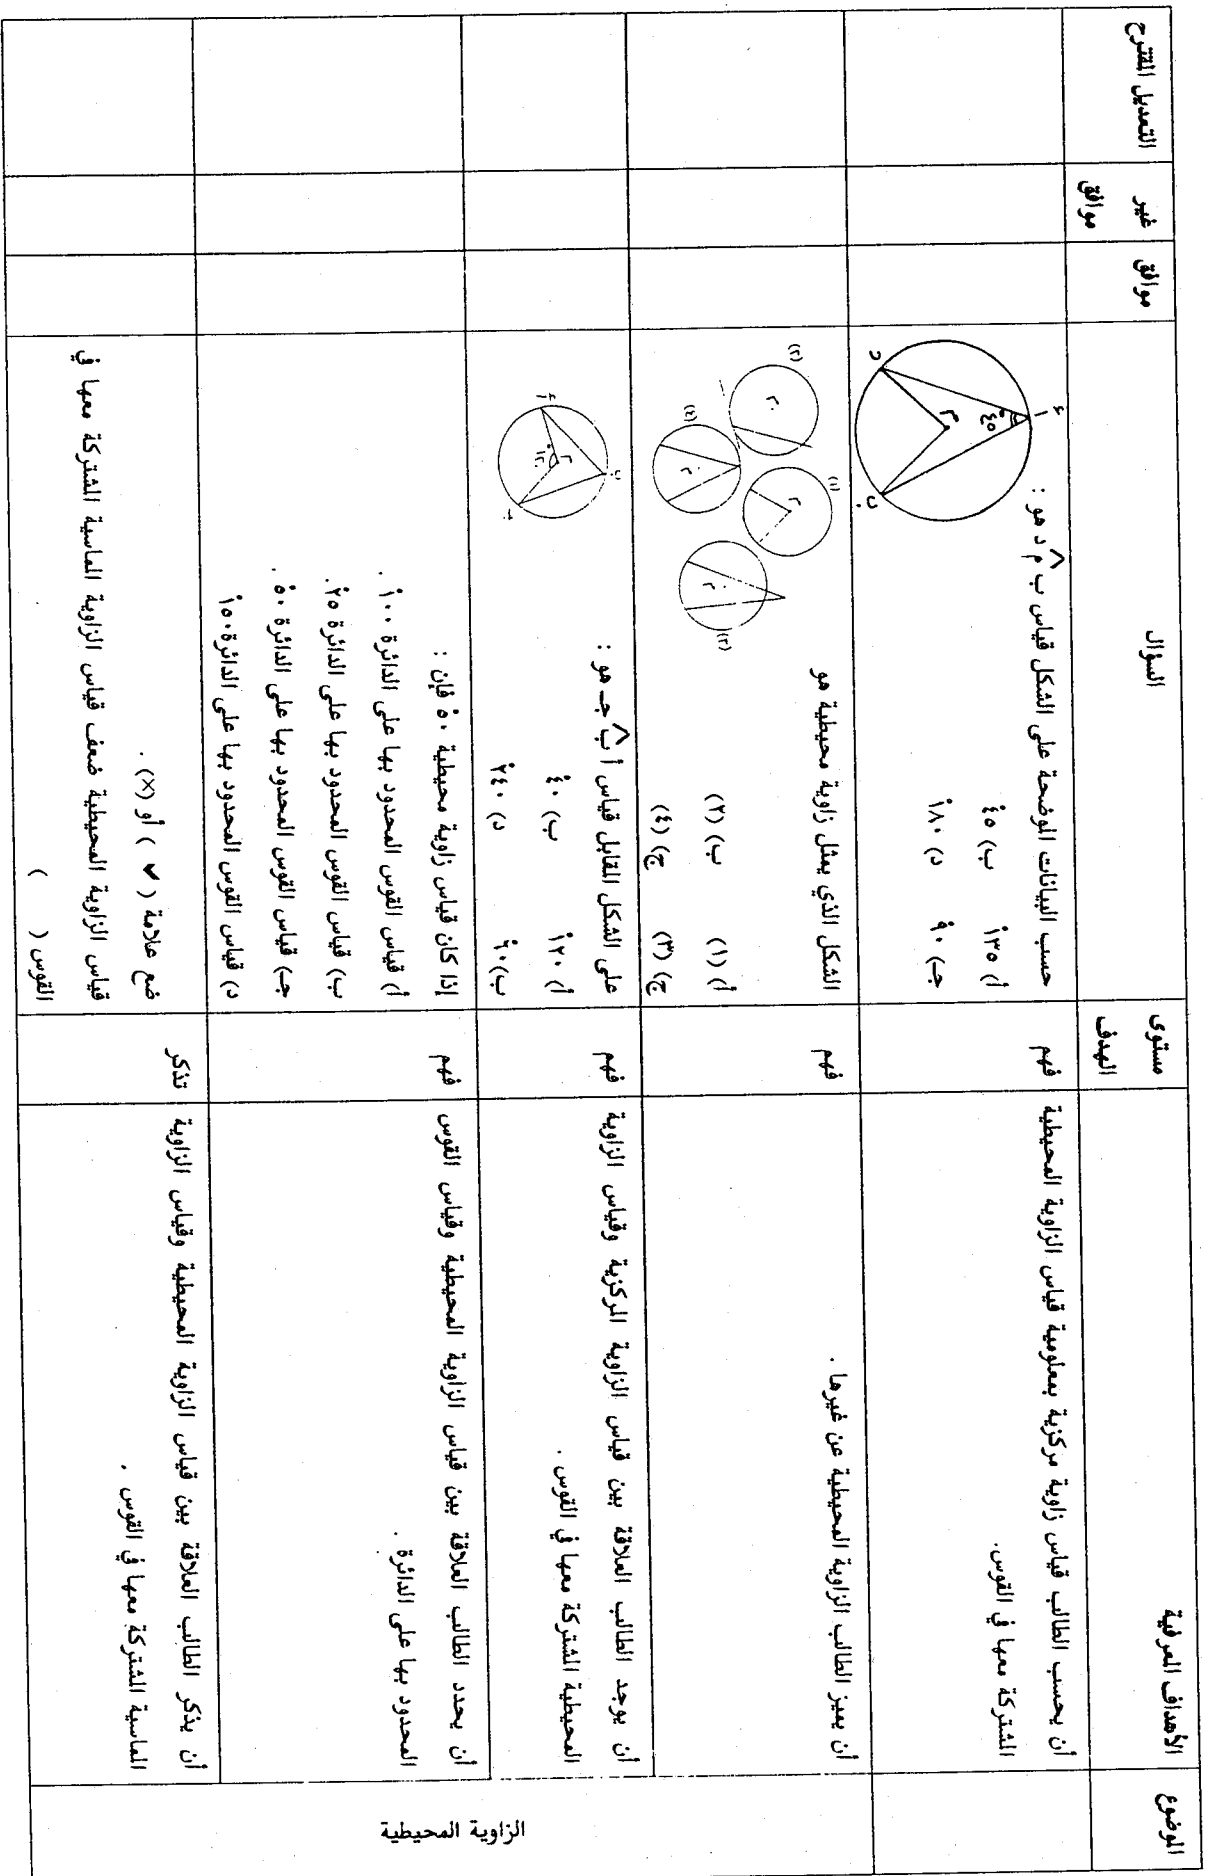 الموضوع
الأهداف المعرفية
مستوى الهدف
السؤال
موافق
غير موافق
التعديل المقترح
الزاوية المحيطية
أن يحسب الطالب قياس زاوية مركزية بمعلومية قياس الزاوية المحيطية
المشتركة معها في القوس.
فهم
حسب البيانات الموضحة على الشكل قياس ب م د هو :
أ) ١٣٥ ب) ٤٥
جـ) ٩٠ د) ١٨٠
أ
٤٥
م
د
ب
أن يميز الطالب الزاوية المحيطية عن غيرها .
فهم
الشكل الذي يمثل زاوية محيطية هو
أ) (١) ب) (٢)
ج) (٣) ج) (٤)
(٢)
م
(١)
م
(٤)
م
(٣)
م
أن يوجد الطالب العلاقة بين قياس الزاوية المركزية وقياس الزاوية
المحيطية المشتركة معها في القوس .
فهم
على الشكل المقابل قياس أ ب جـ هو :
أ) ١٢٠ ب) ٤٠
ب) ٦٠ د) ٢٤٠
ب
م
١٢٠
أ
جـ
أن يحدد الطالب العلاقة بين قياس الزاوية المحيطية وقياس القوس
المحدود بها على الدائرة .
فهم
إذا كان قياس زاوية محيطية ٥٠ فإن :
أ) قياس القوس المحدود بها على الدائرة ١٠٠ .
ب) قياس القوس المحدود بها على الدائرة ٢٥ .
جـ) قياس القوس المحدود بها على الدائرة ٥٠ .
د) قياس القوس المحدود بها على الدائرة ١٥٠
أن يذكر الطالب العلاقة بين قياس الزاوية المحيطية وقياس الزاوية
المماسية المشتركة معها في القوس .
تذكر
ضع علامة ( ✔ ) أو (×) .
قياس الزاوية المحيطية ضعف قياس الزاوية المماسية المشتركة معها في
القوس ( )